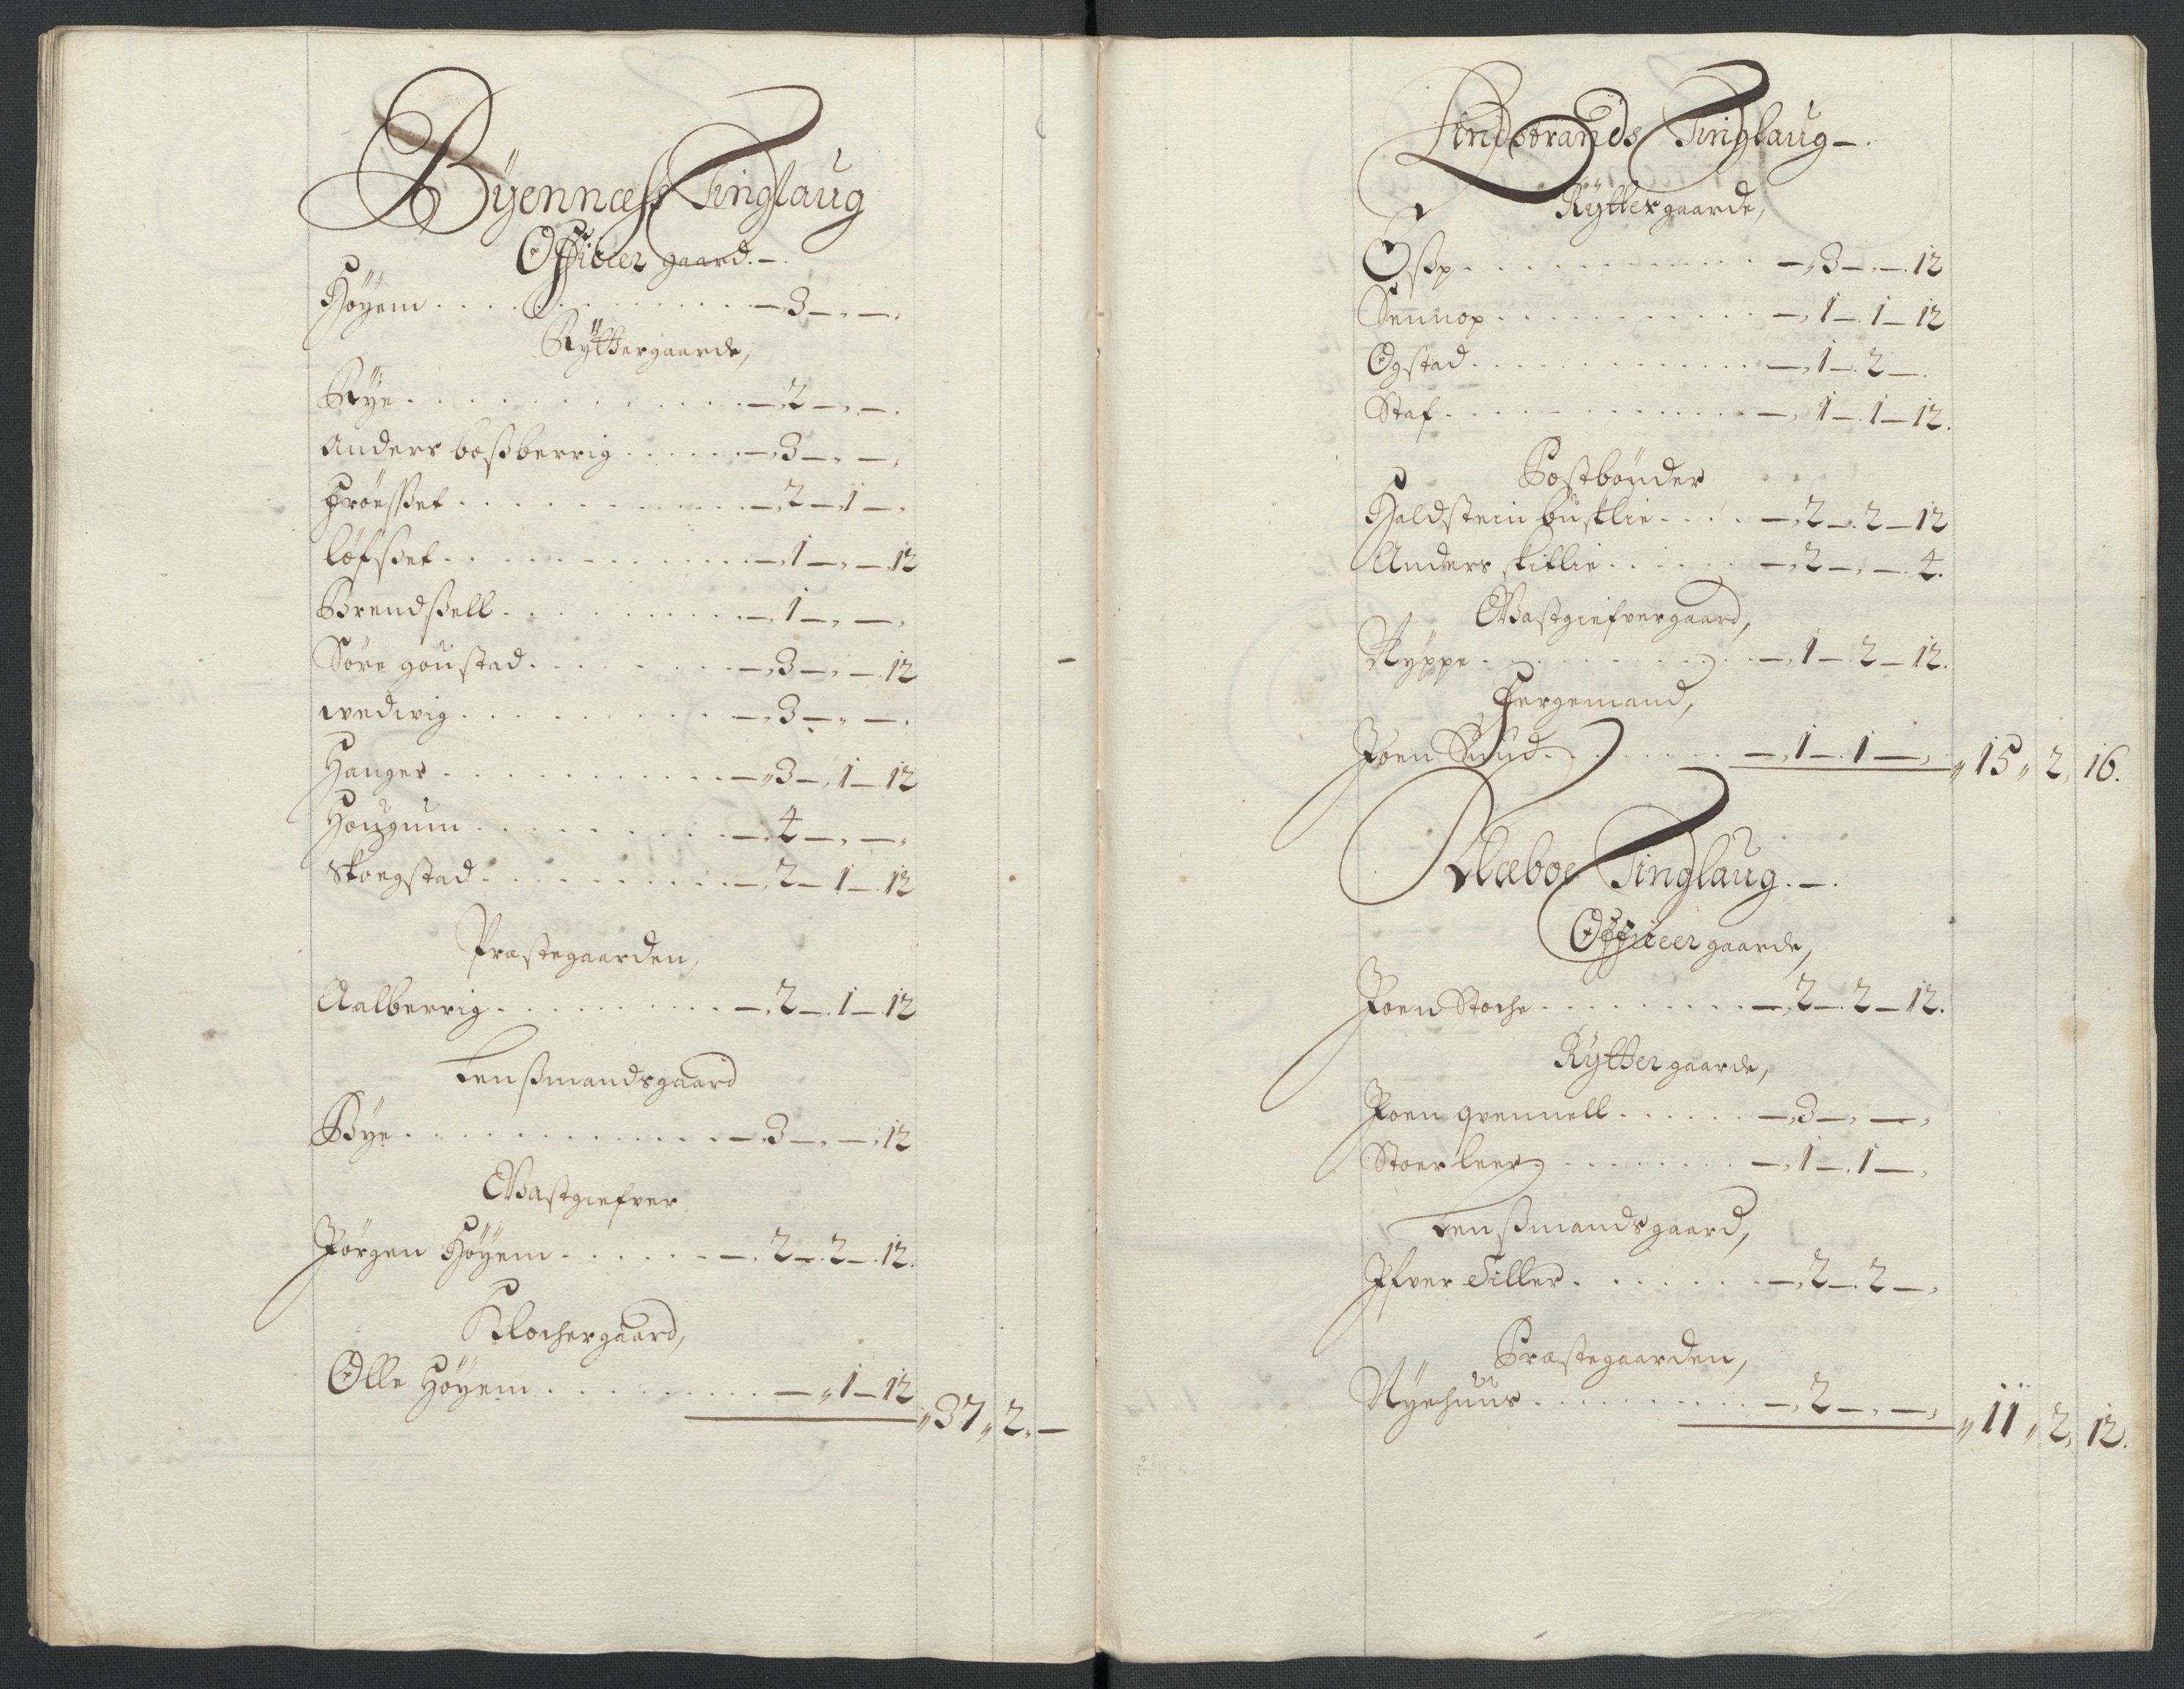 Byennæss Tinglaug
Officeer gaard.-.
Höyem . . . . . - 3 - . - .
Ryttergaarde,
Rye . . . . . - 2 - . - .
Anders bossberrig . . . . . - 3 - . - .
Fröesset . . . . . - 2 - 1 - .
löfsset . . . . . - 1 - . - 12
Brendssell . . . . . - 1 - . - .
Söre goustad . . . . . - 3 - . - 12
wedwig . . . . . - 3 - . - .
Hanger . . . . . - 3 - 1 - 12
Hougum . . . . . - 4 - . - .
Skoegstad . . . . . - 2 - 1 - 12
Præstegaarden,
Aalberrig . . . . . - 2 - 1 - 12
Lenssmandsgaard
Bye . . . . . - 3 - . - 12
Giæstgiefver
Jörgen Höyem . . . . . - 2 - 2 - 12.
Klochergaard,
Olle Höyem . . . . . - „ 1 - 12
„ 37 „ 2. -
Lindstrands Tinglaug -.
Ryttergaarde,
Ossp . . . . . - 3 - . - 12
Sennop . . . . . - 1 - 1 - 12
Ogstad . . . . . - 1 - 2 - .
Staf . . . . . - 1 - 1 - 12.
Postbönder
Haldstein bustlie . . . . . - 2 - 2 - 12
Anders skitlie . . . . . - 2 - . - 4.
Giæstgiefvergaard,
Ryppe . . . . . - 1 - 2 - 12.
Fergemand,
Joen Sund . . . . . - 1 - 1 - .
„ 15 „ 2. 16.
Klæboe Tinglaug.-.
Officeer gaarde,
Joen Stoche . . . . . - 2 - 2 - 12.
Rytter gaarde,
Joen qvennell . . . . . - 3 - . - .
Stoer leer . . . . . - 1 - 1 - .
Lenssmandsgaard,
Ifver Tiller . . . . . - 2 - 2 - .
Præstegaarden,
Nyehuus . . . . . - 2 - . - .
„ 11 „ 2. 12.